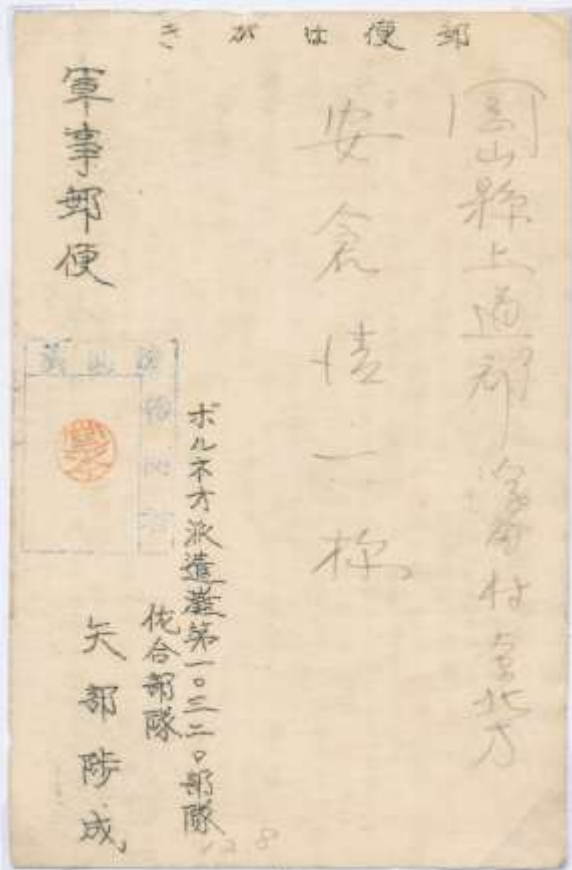 郵便はがき
岡山縣上道郡
村
北方
安倉 一 様
軍事郵便
ボルネオ派遣灘第一〇三二〇部隊
佐合部隊
矢部陟成